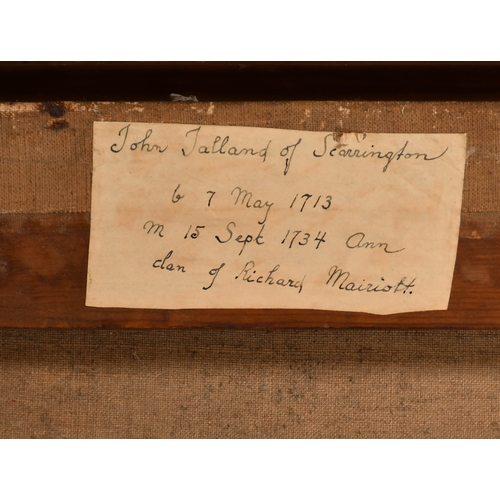 John Talland of Scarrington
b 7 May 1713
m 15 Sept 1734 Ann
dau of Richard Mairiott.